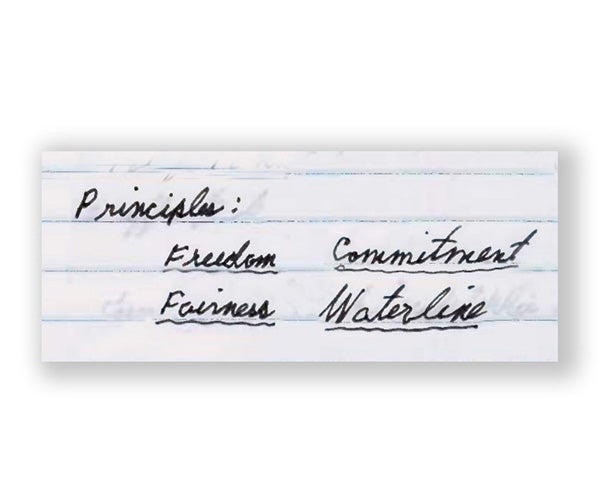 Principles:
Freedom Commitment
Fairness Waterline